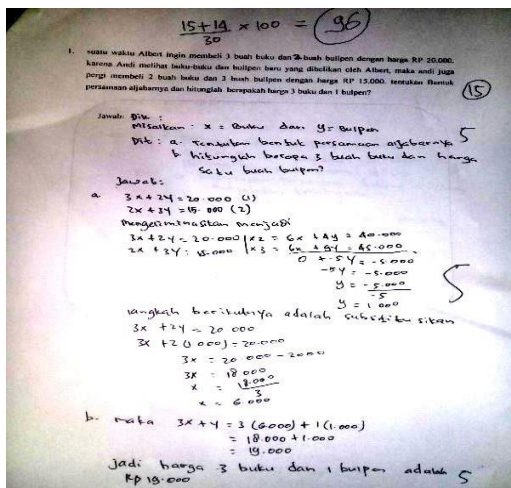 15+14 × 100 = 96
30
1. suatu waktu Albert ingin membeli 3 buah buku dan 2 buah bulpen dengan harga RP 20.000.
karena Andi melihat buku-buku dan bulpen baru yang dibelikan oleh Albert, maka andi juga
pergi membeli 2 buah buku dan 3 buah bulpen dengan harga RP 15.000. tentukan Bentuk
persamaan aljabarnya dan hitunglah berapakah harga 3 buku dan 1 bulpen?
15
Jawab: Dik :
Misalkan : x = Buku dan y = Bulpen
5
Dit : a. Tentukan bentuk persamaan aljabarnya
b. hitunglah berapa 3 buah buku dan harga
satu buah bulpen?
Jawab:
a. 3x + 2y = 20.000 (1)
2x + 3y = 15.000 (2)
mengeliminasikan menjadi
3x + 2y = 20.000 | x2 = 6x + 4y = 40.000
2x + 3y = 15.000 | x3 = 6x + 9y = 45.000
0 + -5y = -5.000
-5y = -5.000
y = -5.000
-5
y = 1.000
5
langkah berikutnya adalah subsditusikan
3x + 2y = 20 000
3x + 2 (1.000) = 20.000
3x = 20.000 - 2000
3x = 18 000
x = 18.000
3
x = 6.000
b. maka 3x + y = 3 (6.000) + 1 (1.000)
= 18.000 + 1.000
= 19.000
jadi harga 3 buku dan 1 bulpen adalah
Rp 19.000
5